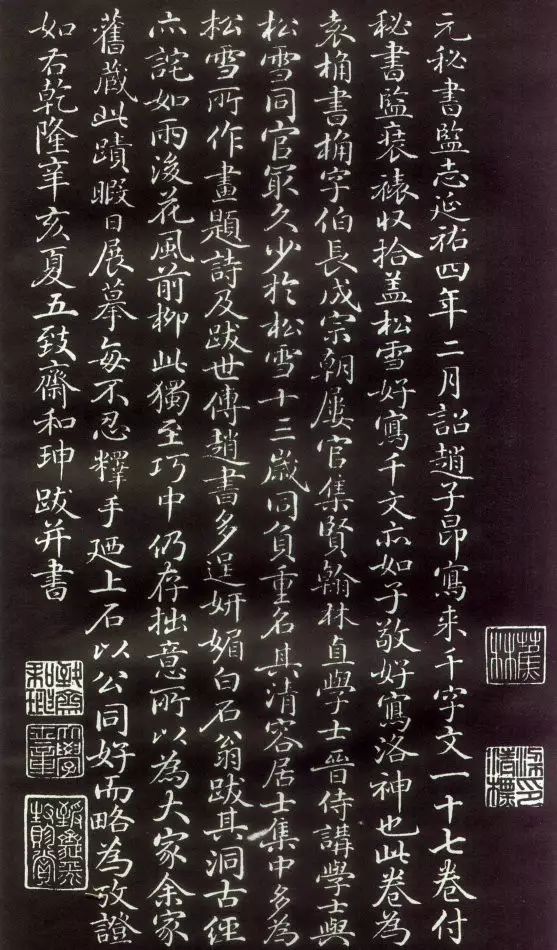 元秘書監志延祐四年二月詔趙子昂寫来千字文一十七卷付
秘書監裝褙収拾盖松雪好寫千文亦如子敬好寫洛神也此卷為
袁桷書桷字伯長成宗朝屢官集賢翰林直學士晉侍講學士與
松雪同官冣久少於松雪十三歲同負重名其清容居士集中多為
松雪所作畫題詩及跋世傳趙書多逞妍媚白石翁跋其洞古經
亦詫如雨後花風前柳此獨至巧中仍存拙意所以為大家余家
舊藏此蹟暇日展摹每不忍釋手廼上石以公同好而略為攷證
如右乾隆辛亥夏五致齋和珅跋并書
蕉林